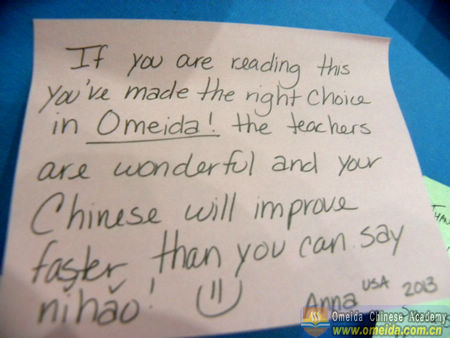 If you are reading this
you've made the right choice
in Omeida! the teachers
are wonderful and your
Chinese will improve
faster than you can say
nihǎo!
Anna USA 2013
Omeida Chinese Academy
www.omeida.com.cn